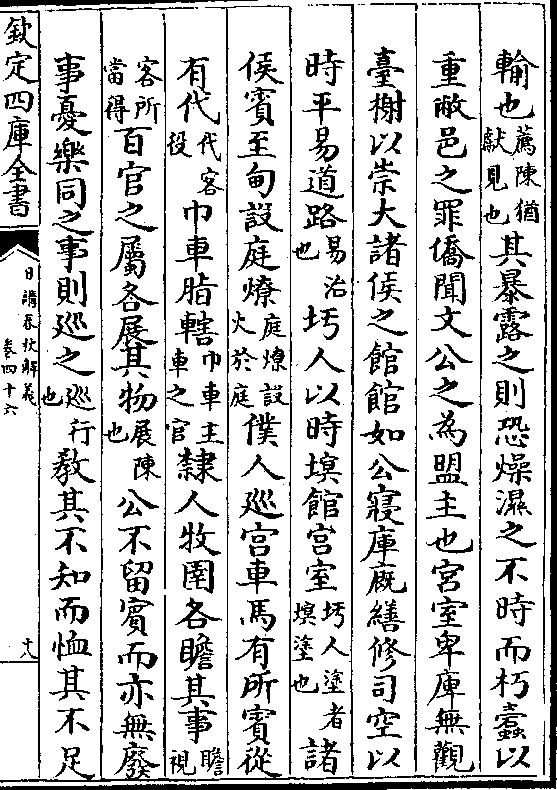 輸也薦陳猶獻見也其暴露之則恐燥濕之不時而朽蠹以
重敝邑之罪僑聞文公之為盟主也宮室卑庫無觀
臺榭以崇大諸侯之館館如公寢庫廐繕修司空以
時平易道路易治也圬人以時塓館宮室圬人塗者塓塗也諸
侯賓至甸設庭燎庭燎設火於庭僕人廵宫車馬有所賓從
有代代客役巾車脂轄巾車主車之官隸人牧圉各瞻其事瞻視
客所當得百官之屬各展其物展陳也公不留賓而亦無廢
事憂樂同之事則廵之廵行也教其不知而恤其不足
欽定四庫全書
日講春秋解義
卷四十六
十八